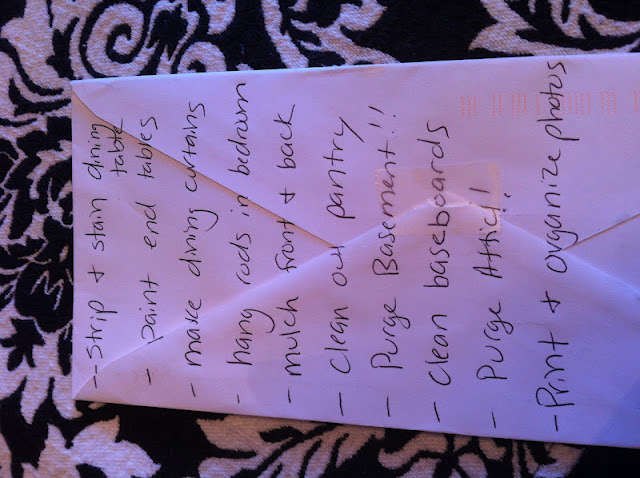 - Strip + stain dining
table
- paint end tables
- make dining curtains
- hang rods in bedroom
- mulch front + back
- Clean out pantry
- Purge Basement!!
- Clean baseboards
- Purge Attic!!
- Print + organize photos